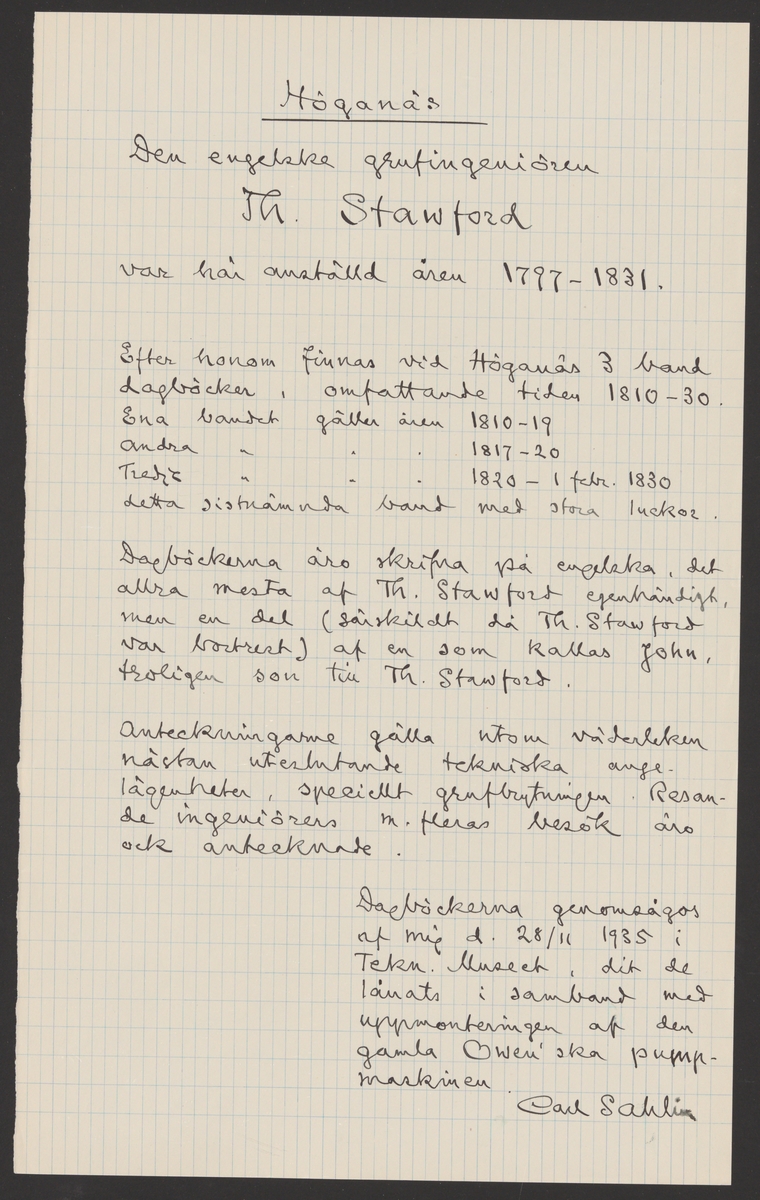 Höganäs
Den engelske grufingeniören
Th. Stawford
var här anställd åren 1797-1831.
Efter honom finnas vid Höganäs 3 band
dagböcker, omfattande tiden 1810-30.
Ena bandet gäller åren 1810-19
Andra " " " 1817-20
Tredje " " " 1820 - 1 febr. 1830
detta sistnämnda band med stora luckor.
Dagböckerna äro skrifna på engelska, det
allra mesta af Th. Stawford egenhändigt,
men en del (särskildt då Th. Stawford
var bortrest) af en som kallas John,
troligen son till Th. Stawford.
Anteckningarne gälla utom väderleken
nästan uteslutande tekniska ange-
lägenheter, speciellt grufbrytningen. Resan-
de ingeniörers m. fleras besök äro
ock antecknade.
Dagböckerna genomsågos
af mig d. 28/11 1935 i
Tekn. Museet, dit de
lånats i samband med
uppmonteringen af den
gamla Owen'ska pump-
maskinen.
Carl Sahlin